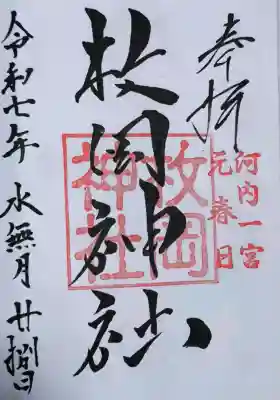 奉拝
河内一宮
元春日
枚岡神社
枚岡
神社
令和七年 水無月 廿捌日